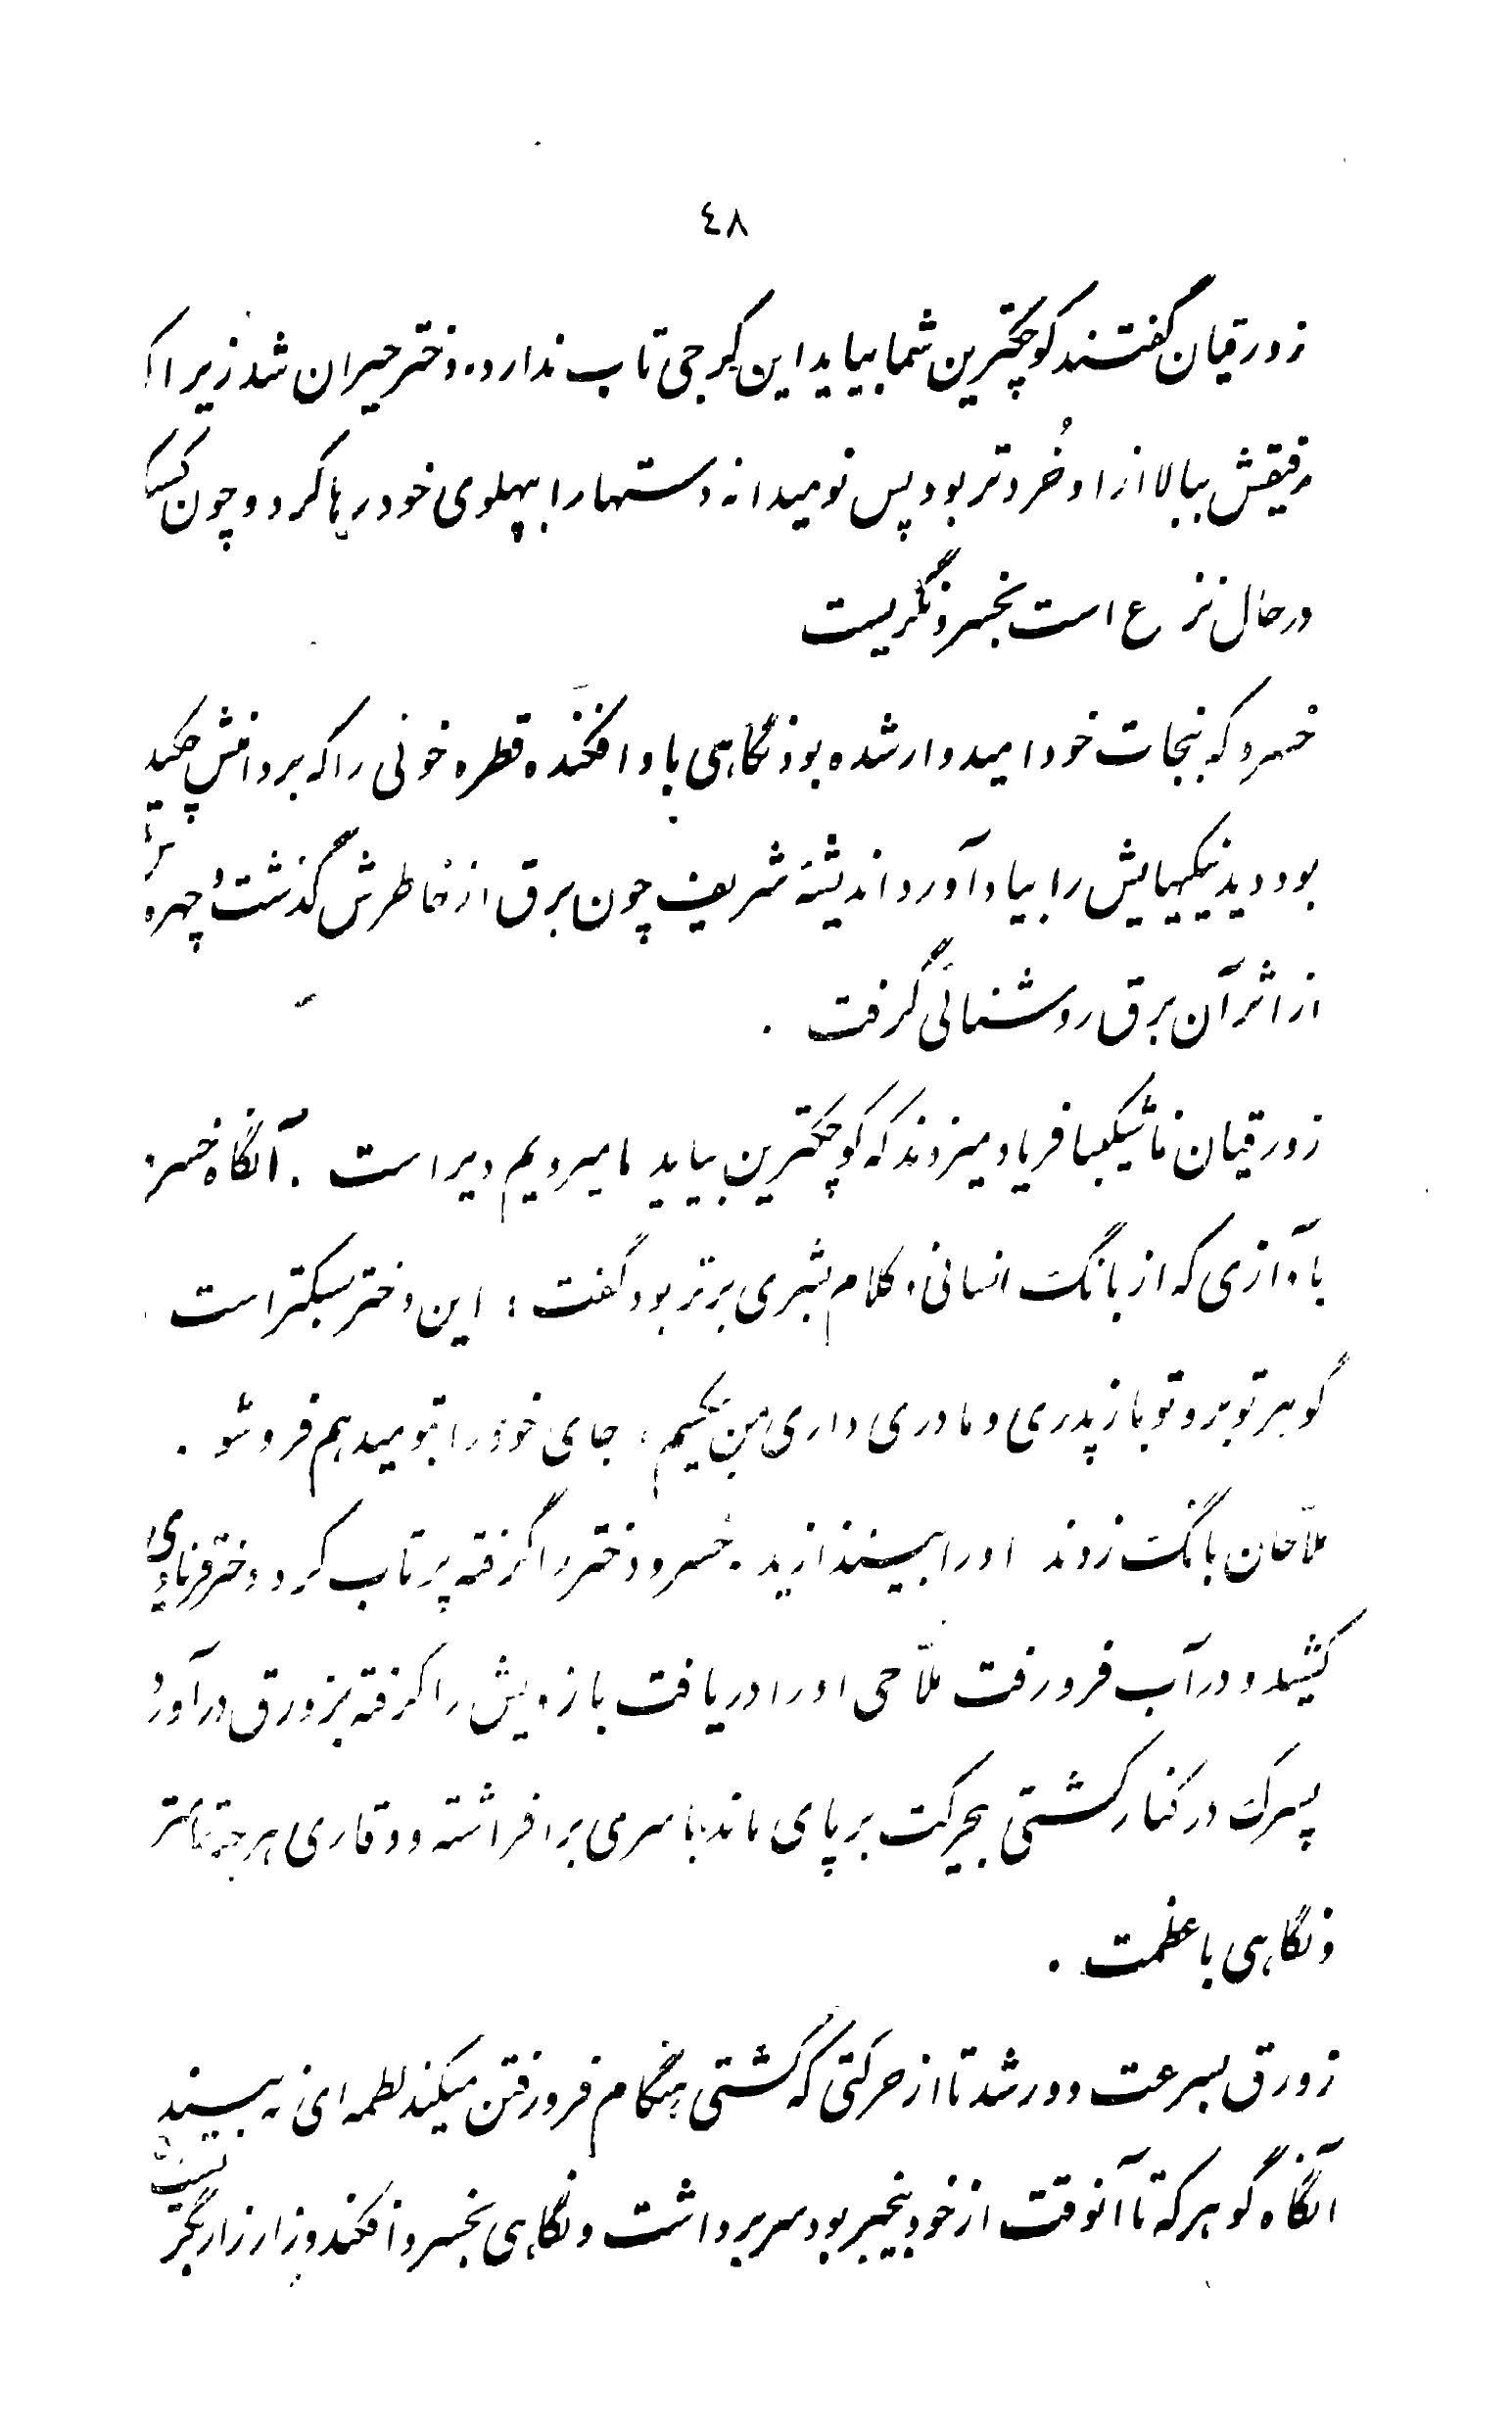 ٤٨
زورقیان گفتند کوچکترین شما بیاید این کرجی تاب ندارد. دختر حیران شد زیرا که
رفیقش ببالا از او خُردتر بود پس نومیدانه دستها را بپهلوی خود رها کرد و چون کسیکه
در حال نزع است بخسرو نگریست
خسرو که بنجات خود امیدوار شده بود نگاهی باو افکنده قطره خونی را که بر دامنش چکیده
بود دید نیکیهایش را بیاد آورد اندیشهٔ شریف چون برق از خاطرش گذشت و چهره‌اش
از اثر آن برق روشنائی گرفت .
زورقیان ناشکیبا فریاد میزدند که کوچکترین بیاید ما میرویم دیر است . آنگاه خسرو
با آوازی که از بانگ انسانی و کلام بشری برتر بود گفت : این دختر سبکتر است .
گوهر تو برو تو باز پدری و مادری داری من یتیمم ، جای خود را بتو میدهم فرو شو .
ملاّحان بانگ زدند او را بیندازید . خسرو دختر را گرفته پرتاب کرد دختر فریادی
کشید و در آب فرو رفت ملاّحی او را دریافت بازویش را گرفته بزورق در آورد
پسرک در کنار کشتی بیحرکت بر پای ماند با سری برافراشته و وقاری هر چه تمامتر
و نگاهی با عظمت .
زورق بسرعت دور شد تا از حرکتی که کشتی هنگام فرو رفتن میکند لطمه‌ای نه بیند
آنگاه گوهر که تا آنوقت از خود بیخبر بود سر برداشت و نگاهی بخسرو افکند و زار زار بگریست